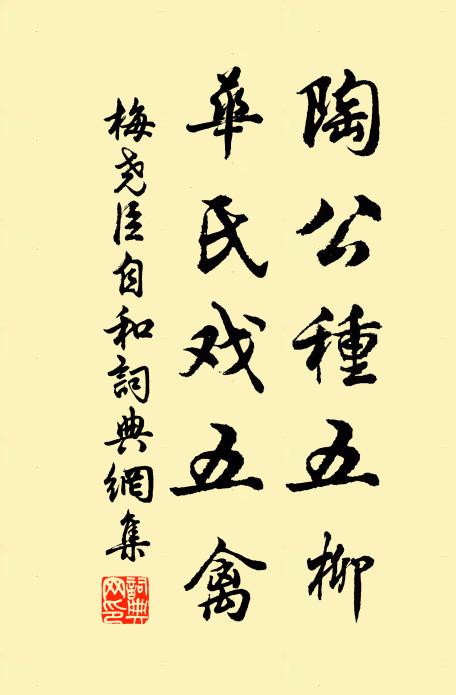 陶公種五柳
华氏戏五禽
梅尧臣自和詞典網集
詞典网印